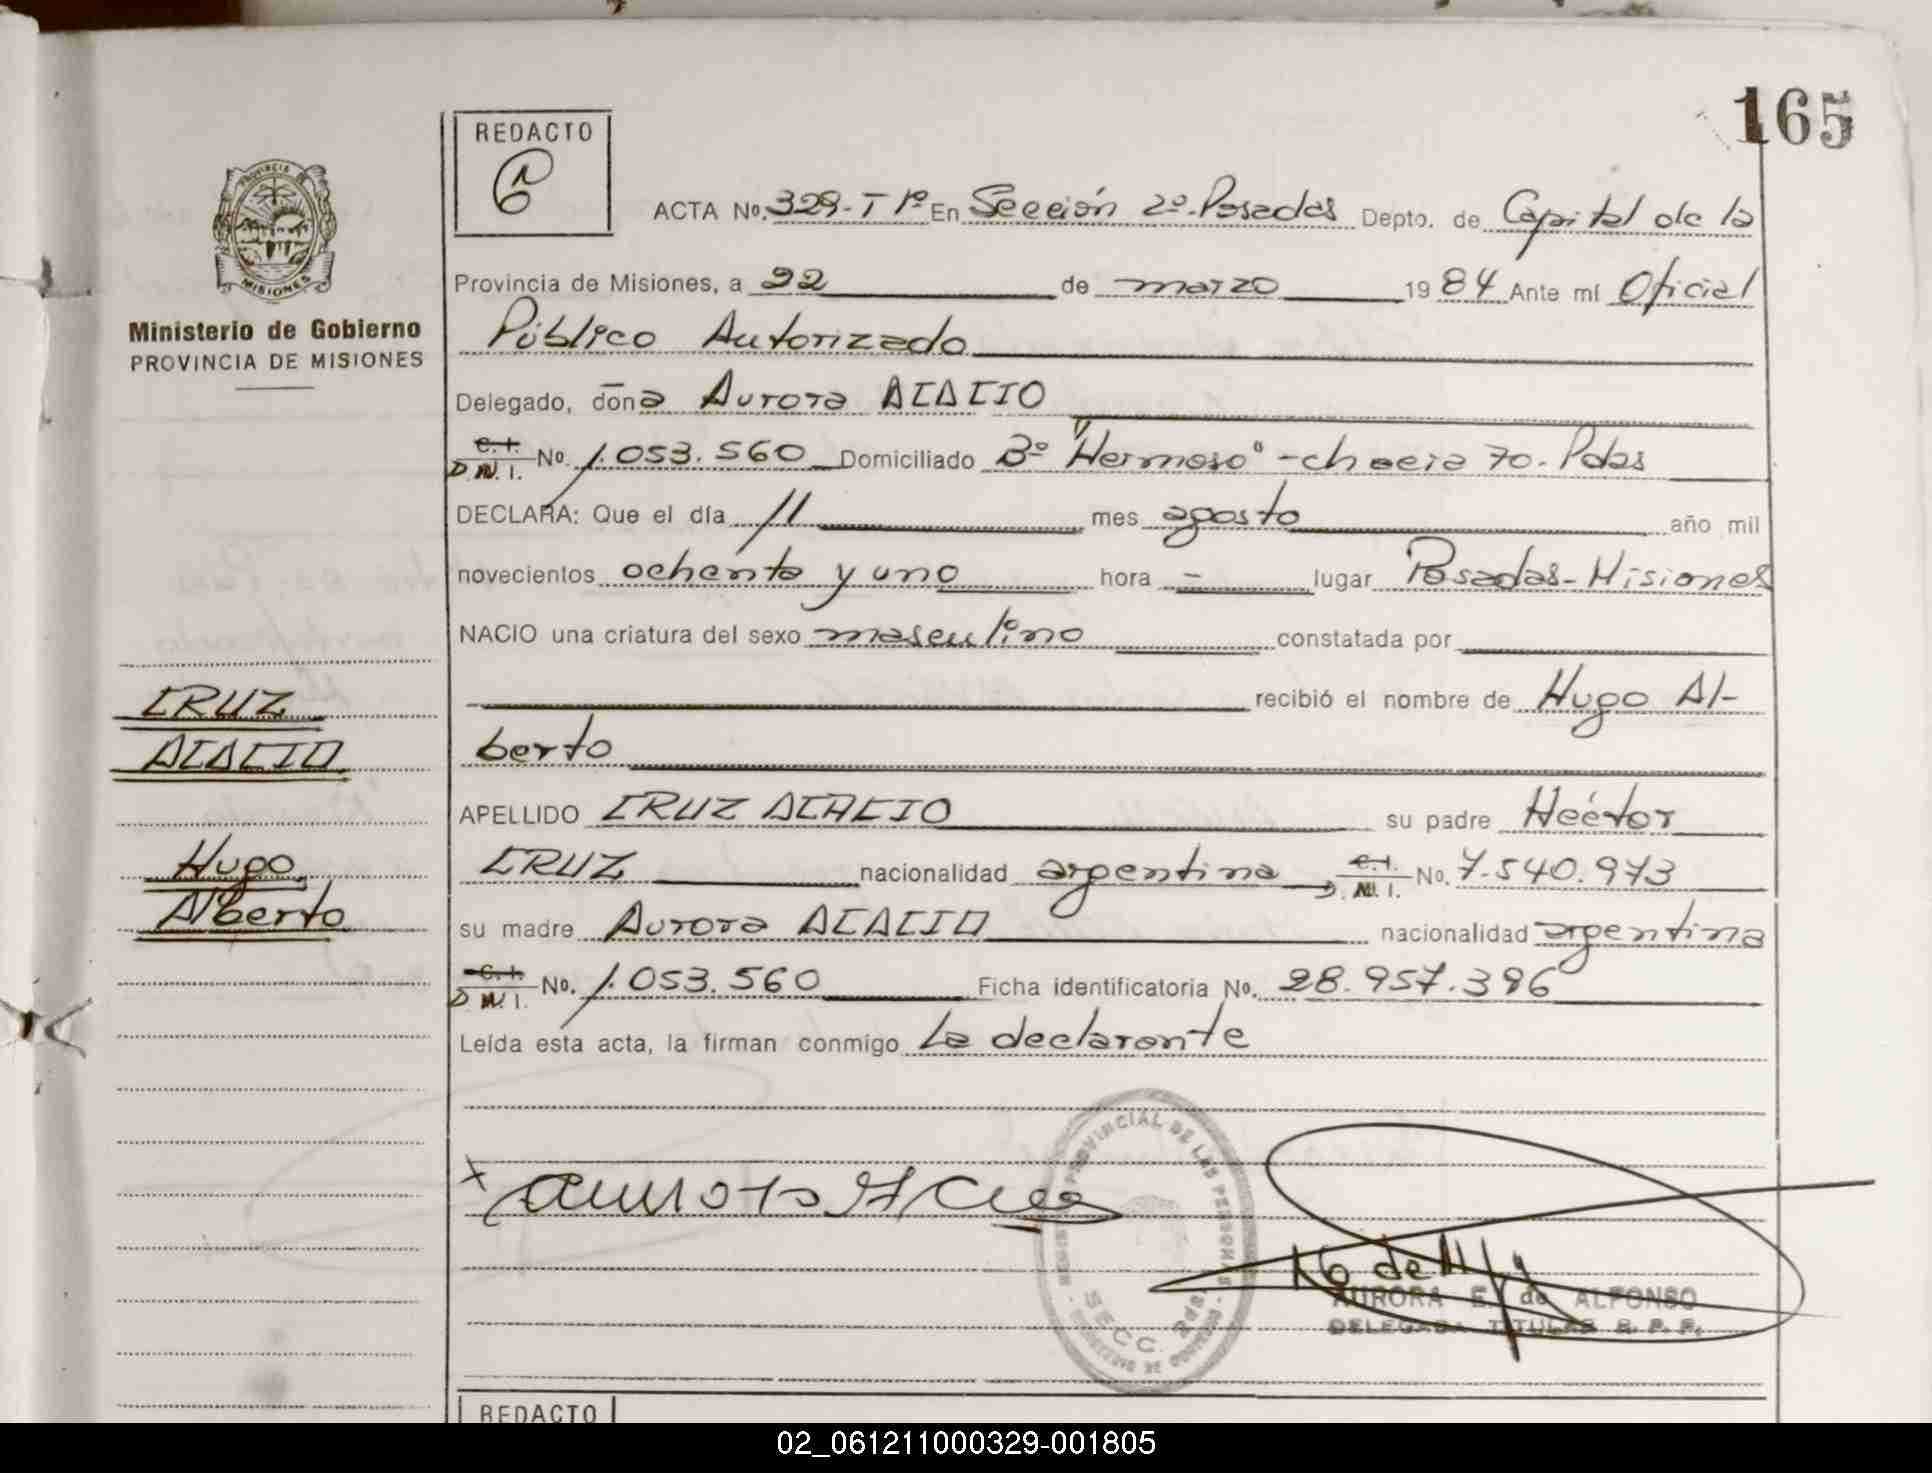 165
REDACTO
PROVINCIA DE
MISIONES
Ministerio de Gobierno
PROVINCIA DE MISIONES
ACTA No. 329-T 1º En Sección 2º-Posadas Depto. de Capital de la
Provincia de Misiones, a 22 de marzo 1984 Ante mí Oficial
Público Autorizado
Delegado, doña Aurora ACACIO
C.I. D.N.I. No. 1.053.560 Domiciliado Bº "Hermoso" - chacra 70. Pdas
DECLARA: Que el día 11 mes agosto año mil
novecientos ochenta y uno hora - lugar Posadas-Misiones
NACIO una criatura del sexo masculino constatada por
recibió el nombre de Hugo Al-
berto
APELLIDO CRUZ ACACIO su padre Héctor
CRUZ nacionalidad argentina C.I. D.N.I. No. 7.540.973
su madre Aurora ACACIO nacionalidad argentina
C.I. D.N.I. No. 1.053.560 Ficha identificatoria No. 28.957.396
Leída esta acta, la firman conmigo la declarante
CRUZ
ACACIO
Hugo
Alberto
PROVINCIAL DE LAS PERSONAS
SECC. 2da
AURORA E. de ALFONSO
DELEGADA TITULAR R. P. P.
REDACTO
02_061211000329-001805